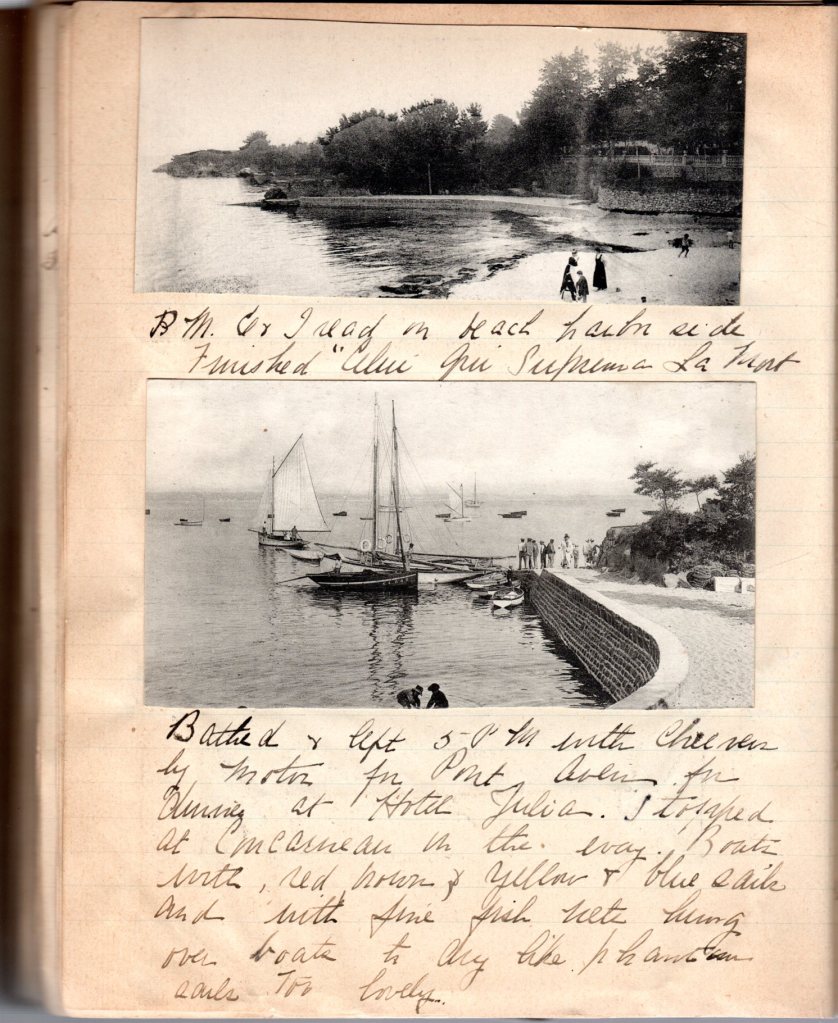 B M. & I read on beach harbor side
Finished "Celui Qui Supprima La Mort
Bathed & left 5 P M with Cheevers
by motor for Pont Aven for
Dinner at Hotel Julia. Stopped
at Concarneau on the way. Boats
with red, brown, yellow & blue sails
and with fine fish nets hung
over boats to dry like phantom
sails Too lovely.